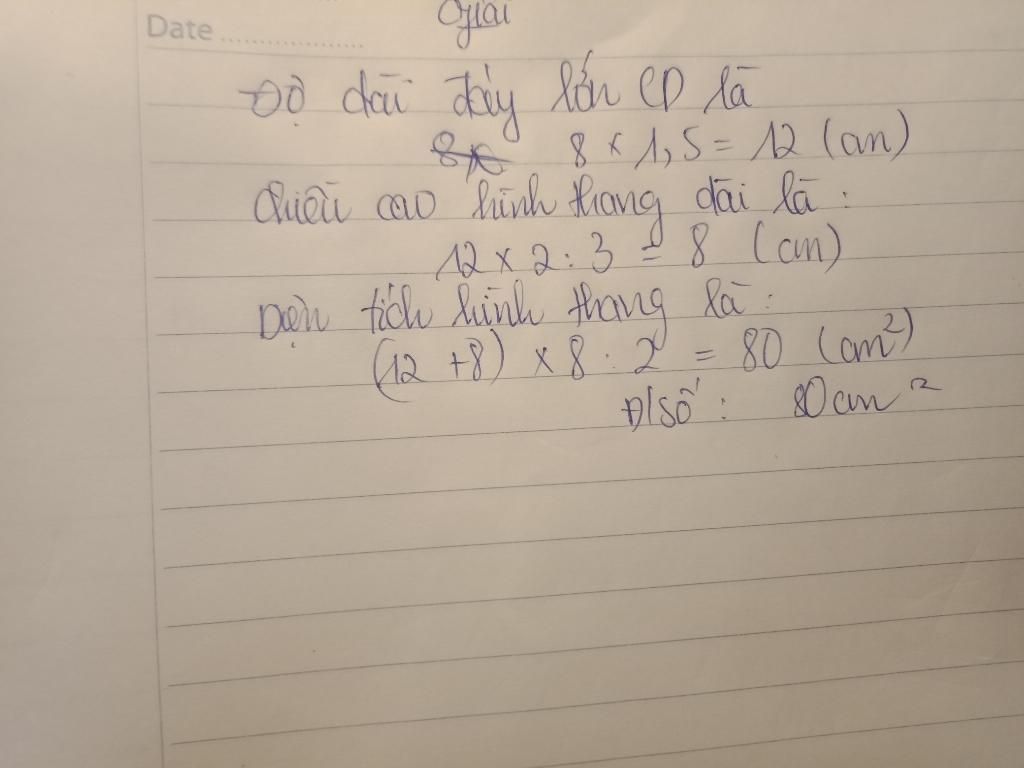 Giải
Date ....................
Độ dài đáy lớn CD là
8 x 1,5 = 12 (cm)
Chiều cao hình thang dài là :
12 x 2 : 3 = 8 (cm)
Diện tích hình thang là :
(12 + 8) x 8 : 2 = 80 (cm²)
Đ/số : 80 cm²